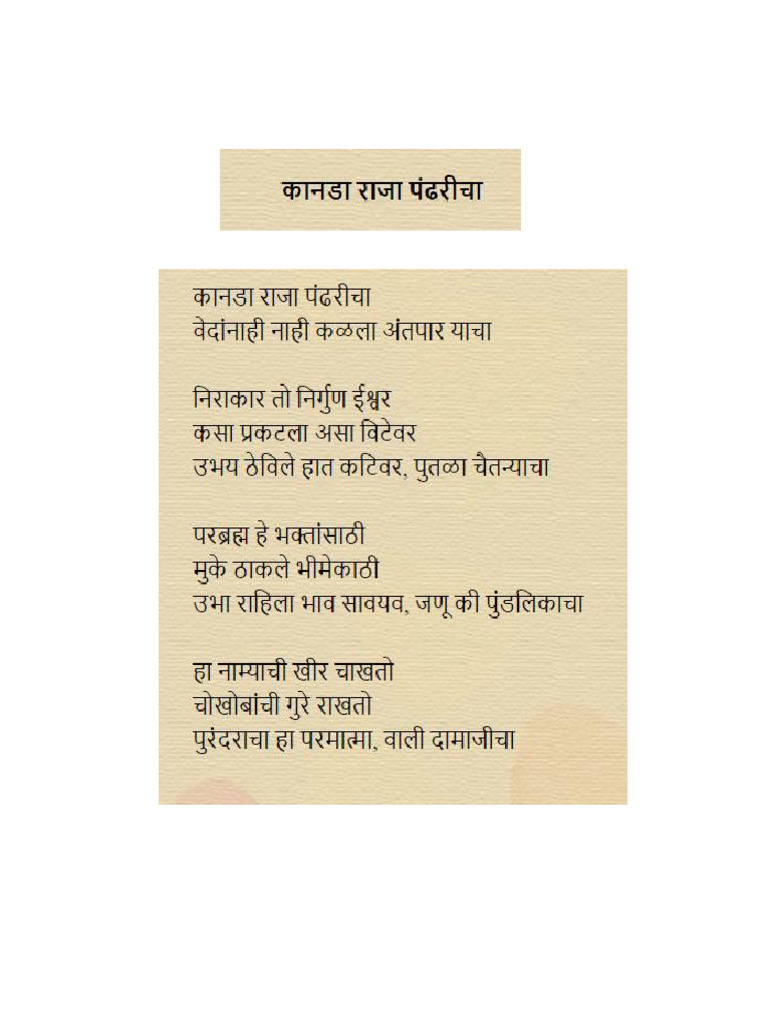 कानडा राजा पंढरीचा
कानडा राजा पंढरीचा
वेदांनाही नाही कळला अंतपार याचा
निराकार तो निर्गुण ईश्वर
कसा प्रकटला असा विटेवर
उभय ठेविले हात कटिवर, पुतळा चैतन्याचा
परब्रह्म हे भक्तांसाठी
मुके ठाकले भीमेकाठी
उभा राहिला भाव सावयव, जणू की पुंडलिकाचा
हा नाम्याची खीर चाखतो
चोखोबांची गुरे राखतो
पुरंदराचा हा परमात्मा, वाली दामाजीचा